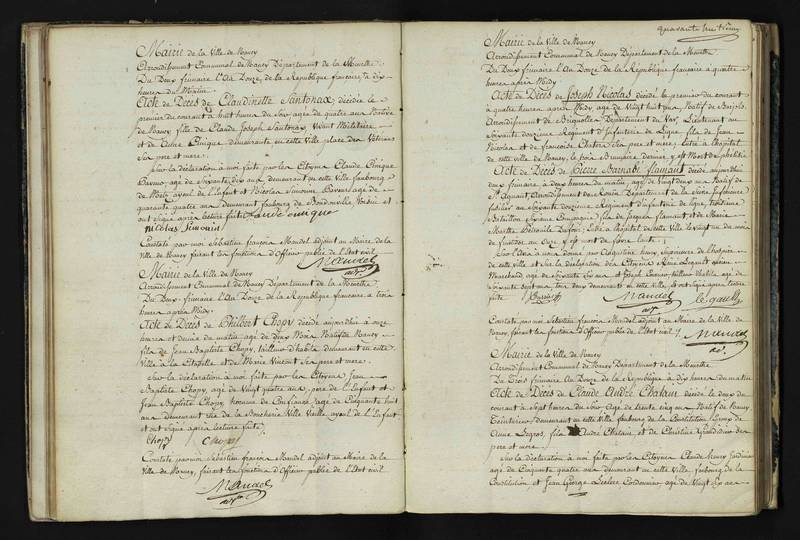 Mairie de la Ville de Nancy
Arrondissement Communal de Nancy Département de la Meurthe
Du Deux frimaire l'An Douze, de la République française, à dix
heures du Matin
Acte de Décès de Claudinette Santonax, décédée le
premier du courant à huit heures du Soir agée de quatre ans Native
de Nancy fille de Claude Joseph Santonax, Vivant Militaire
et de Anne Cunique demeurante en cette Ville place des
ses père et mere.
Sur la déclaration à moi faite par les Citoyens Claude Cunique
agé de Soixante dix ans demeurant en cette Ville faubourg
de Metz ayeul de l'Enfant et Nicolas Simonin agé de
quarante quatre ans demeurant faubourg de Voisin et
ont Signé après lecture faite Claude cunique
nicolas Simonin
Constaté par moi Sébastien françois Mandel adjoint au Maire de la
Ville de Nancy faisant les fonctions d'Officier public de l'état civil
Mandel
adt.
Mairie de la Ville de Nancy
Arrondissement Communal de Nancy Département de la Meurthe
Du Deux frimaire l'An Douze de la République française à trois
heures après Midy
Acte de Décès de Philbert Chopy décédé aujourdhui à onze
heures et demie du matin agé de dix Mois Natif de Nancy
fils de Jean Baptiste Chopy, tailleur d'habits demeurant en cette
Ville à la Citadelle et de Marie Vincent Ses père et mere.
Sur la déclaration à moi faite par les Citoyens Jean
Baptiste Chopy, agé de Vingt quatre ans, père de l'Enfant et
Jean Baptiste Chopy, homme de Confiance, agé de Cinquante huit
ans demeurant rue de la Boucherie Ville Vieille ayeul de l'Enfant
et ont Signé après lecture faite
Chopy Chopy
Constaté par moi Sébastien françois Mandel adjoint au Maire de la
Ville de Nancy, faisant les fonctions d'Officier public de l'état civil
Mandel
adt.
quarante huitième
Mairie de la Ville de Nancy
Arrondissement Communal de Nancy Département de la Meurthe
Du Deux frimaire l'An Douze de la République française à quatre
heures après Midy
Acte de Décès de Joseph Nicolas décédé le premier du courant
à quatre heures après Midy agé de Vingt huit ans, Natif de
Arrondissement de Brignolles Département du Var, Lieutenant au
Soixante douzième Régiment d'Infanterie de Ligne fils de Jean
Nicolas et de françoise Ses père et mere, Entré à l'hôpital
de cette Ville de Nancy, le trois Brumaire dernier, y est Mort de phtisie
Acte de Décès de Pierre Barnabé flamant décédé aujourdhui
deux frimaire à deux heures du matin agé de Vingt deux ans Natif de
Arrondissement de Département de la Seine Inférieure
fusilier au Soixante douzième Régiment d'Infanterie de ligne, troisième
Bataillon Compagnie fils de Jacques flamant et de Marie
Marthe Entré à l'hôpital de cette Ville le Vingt un du mois
de fructidor an onze y est mort de fièvre lente
Sur l'avis à nous donné par Supérieure de l'hospice
de cette Ville et Sur la déclaration des Citoyens
Marchand agé de Soixante ans et Joseph tailleur d'habits, agé de
Soixante Sept ans tous deux demeurant en cette Ville et ont Signé après lecture
faite Mandel le gaully
adt
Constaté par moi Sébastien françois Mandel adjoint au Maire de la Ville de
Nancy, faisant les fonctions d'Officier public de l'état civil Mandel
adt.
Mairie de la Ville de Nancy
Arrondissement Communal de Nancy Département de la Meurthe
Du Trois frimaire An Douze de la République à dix heures du matin
Acte de Décès de Claude André Chatain décédé le deux du
courant à Sept heures du Soir Agé de trente cinq ans Natif de Nancy
Teinturier demeurant en cette Ville faubourg de la Constitution Epoux de
Anne Legros, fils André Chatain et de Christine Ses
père et mere
Sur la déclaration à moi faite par les Citoyens Claude Henry Jardinier
agé de Cinquante quatre ans demeurant en cette Ville, faubourg de la
Constitution et Jean George Leclerc Cordonnier, agé de Vingt ans